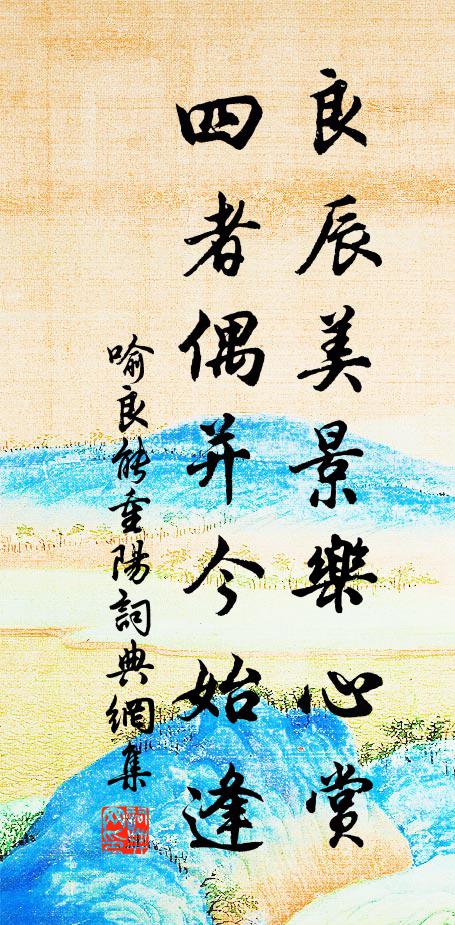 良辰美景樂心賞
四者偶并今始逢
喻良能重陽詞典網集